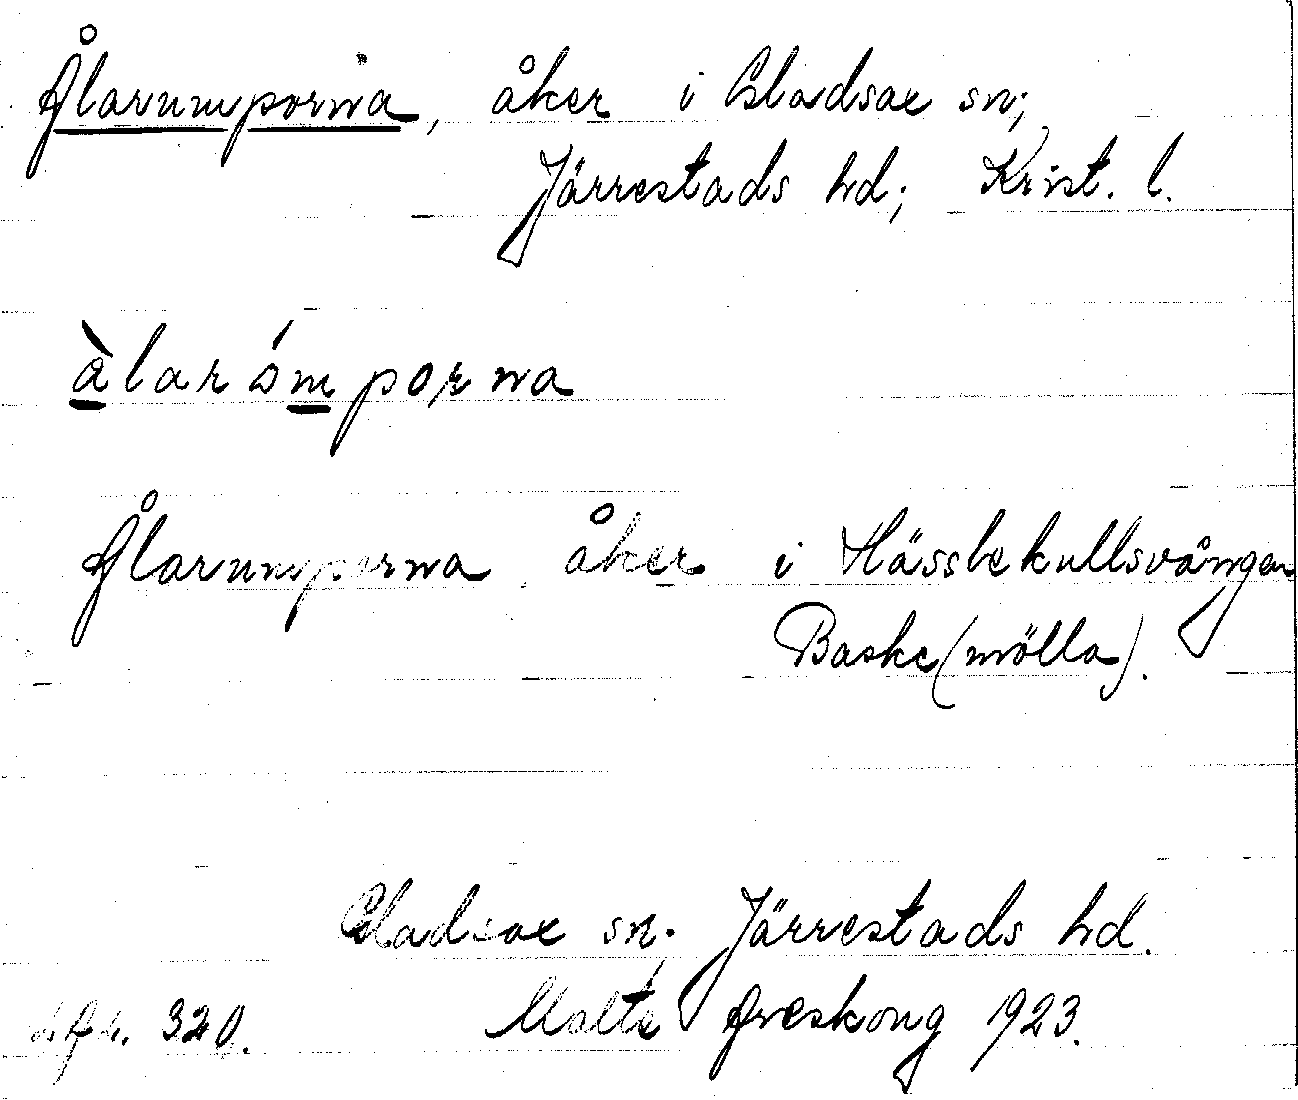 Ålarumporna, åker i Gladsax sn;
Järrestads hd; Krist. l.
àlarómporna
Ålarumporna, åker i Hässlekullsvången
Baske(mölla).
Gladsax sn. Järrestads hd.
320. Malte Areskoug 1923.